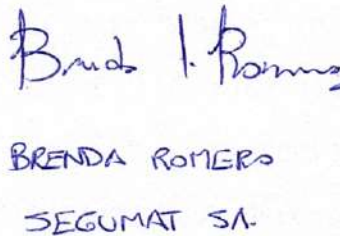 Brenda I. Romero
BRENDA ROMERO
SEGUMAT SA.